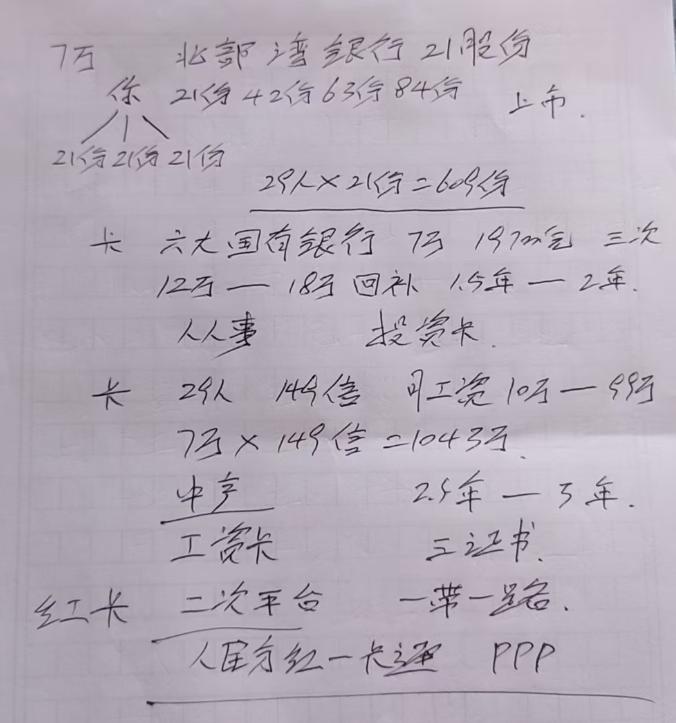 7万 北部湾银行 21股份
你 21份 42份 63份 84份 上市.
21份 21份 21份
29人×21份=609份
卡 六大国有银行 7万 三次
12万—18万 回补 1.5年—2年.
人人事 投资卡.
卡 29人 149倍 月工资 10万—99万
7万×149倍=1043万.
中亨 2.5年—3年.
工资卡 三证书.
红卡 二次平台 一带一路.
人国分红一卡通 PPP